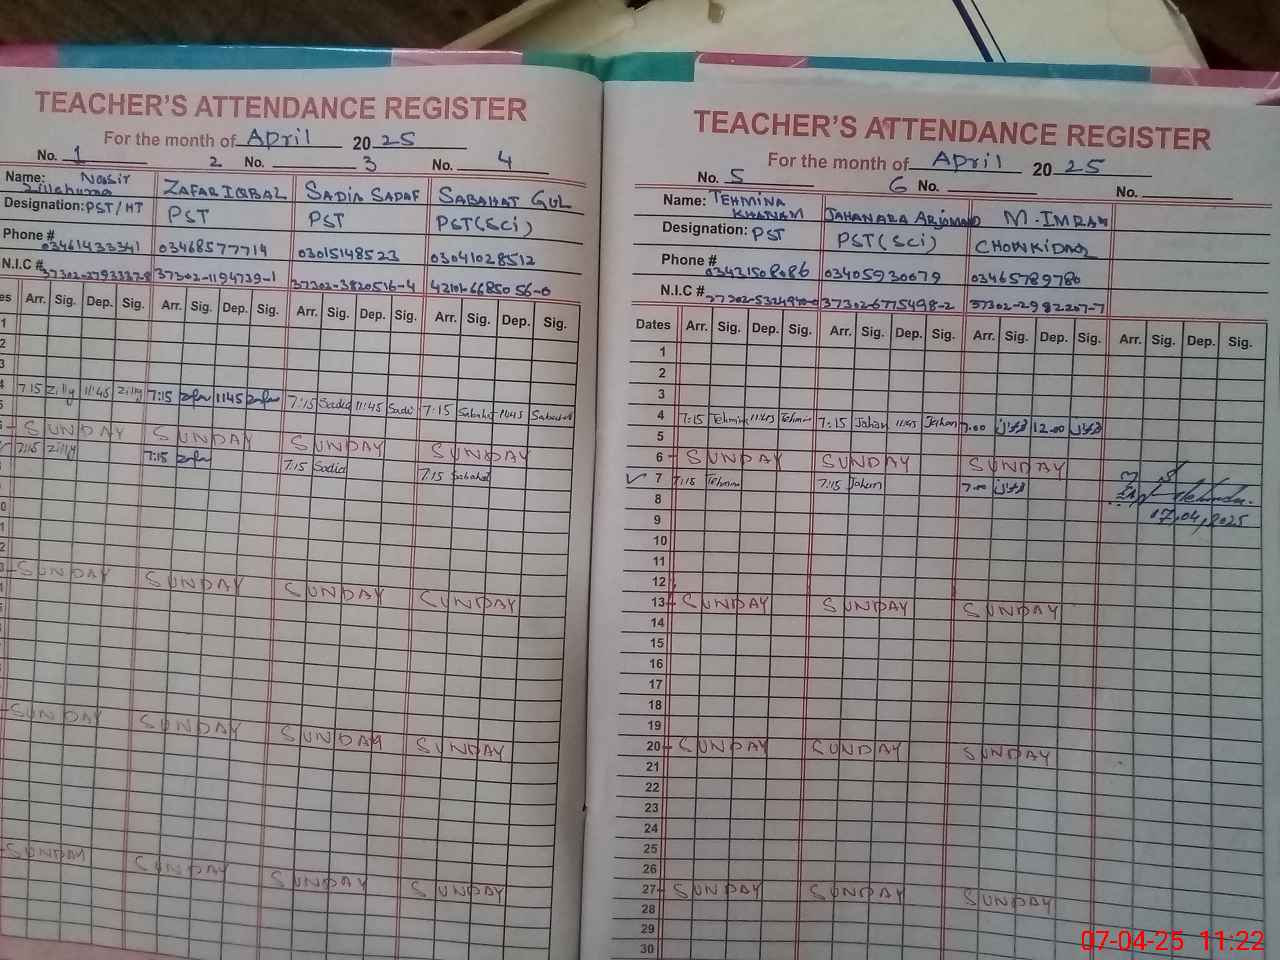 TEACHER'S ATTENDANCE REGISTER
For the month of April 2025
No. 1 2 No. 3 No. 4
Name: Nasir Zillahuma ZAFAR IQBAL SADIA SADAF SABAHAT GUL
Designation: PST/HT PST PST PST(SCi)
Phone # 03461433341 03468577714 03015148523 03041028512
N.I.C # 37302-1194739-1 37302-3820516-4
es Arr. Sig. Dep. Sig. Arr. Sig. Dep. Sig. Arr. Sig. Dep. Sig. Arr. Sig. Dep. Sig.
1
2
3
4 7:15 Zilly 11:45 Zilly 7:15 11:45 7:15 Sadia 11:45 Sadi 7:15 Sabaha 11:45
5
SUNDAY SUNDAY SUNDAY SUNDAY
7:15 Zilly 7:15 7:15 Sadia 7:15 Sabaha
SUNDAY SUNDAY SUNDAY SUNDAY
SUNDAY SUNDAY SUNDAY SUNDAY
SUNDAY SUNDAY SUNDAY SUNDAY
TEACHER'S ATTENDANCE REGISTER
For the month of April 2025
No. 5 6 No. No.
Name: TEHMINA KHANAM JAHANARA ARJOMAND M. IMRAN
Designation: PST PST(SCi) CHOWKIDAR
Phone # 03431508086 03405930079 03465789780
N.I.C # 37302-6775498-2 37302-2982207-7
Dates Arr. Sig. Dep. Sig. Arr. Sig. Dep. Sig. Arr. Sig. Dep. Sig. Arr. Sig. Dep. Sig.
1
2
3
4 7:15 Tehmin 11:45 Tehmin 7:15 Jahan 11:45 Jahan 7.00 12.00
5
6 SUNDAY SUNDAY SUNDAY
7 7:15 Tehmin 7:15 Jahan 7.00
8
9 07,04,2025
10
11
12
13 SUNDAY SUNDAY SUNDAY
14
15
16
17
18
19
20 SUNDAY SUNDAY SUNDAY
21
22
23
24
25
26
27 SUNDAY SUNDAY SUNDAY
28
29
30
07-04-25 11:22